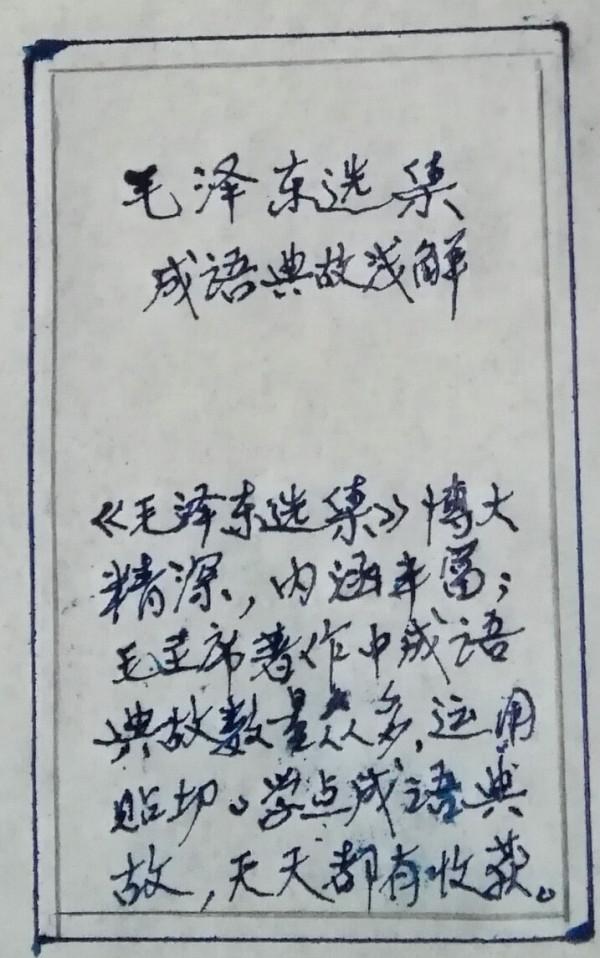 毛泽东选集
成语典故浅解
《毛泽东选集》博大
精深,内涵丰富;
毛主席著作中成语
典故数量众多,运用
贴切。学点成语典
故,天天都有收获。